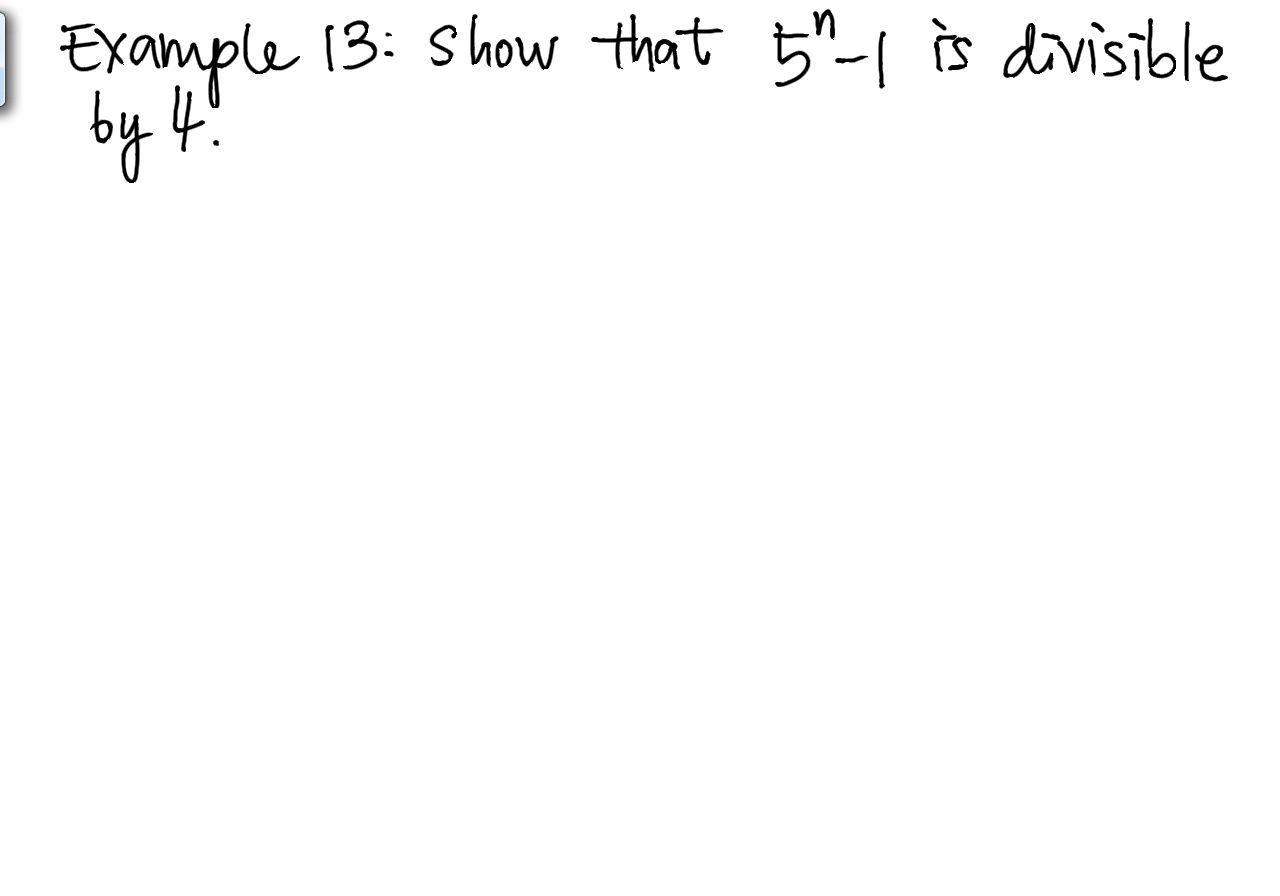 Example 13: show that 5ⁿ-1 is divisible
by 4.